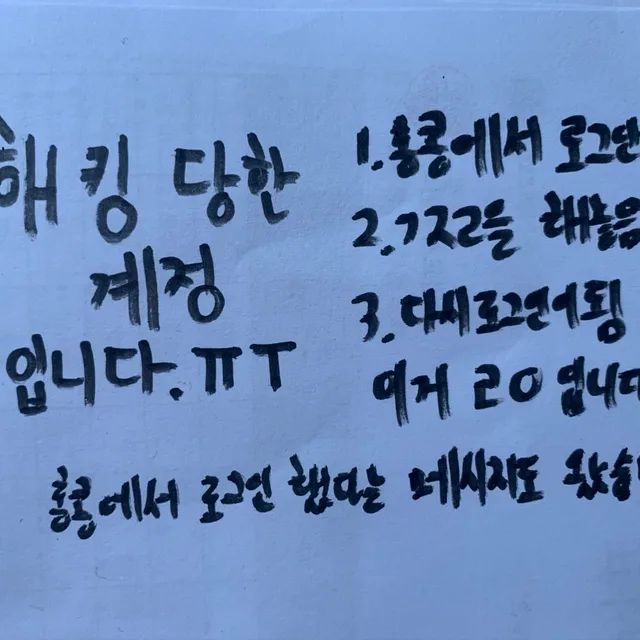 해킹 당한
계정
입니다.ㅠㅜ
1.홍콩에서 로그인
2.ㄱㅈㄹ을 해놓음
3.다시로그인이 됨
이게 ㄹㅇ 입니다
홍콩에서 로그인 했다는 메시지도 왔습